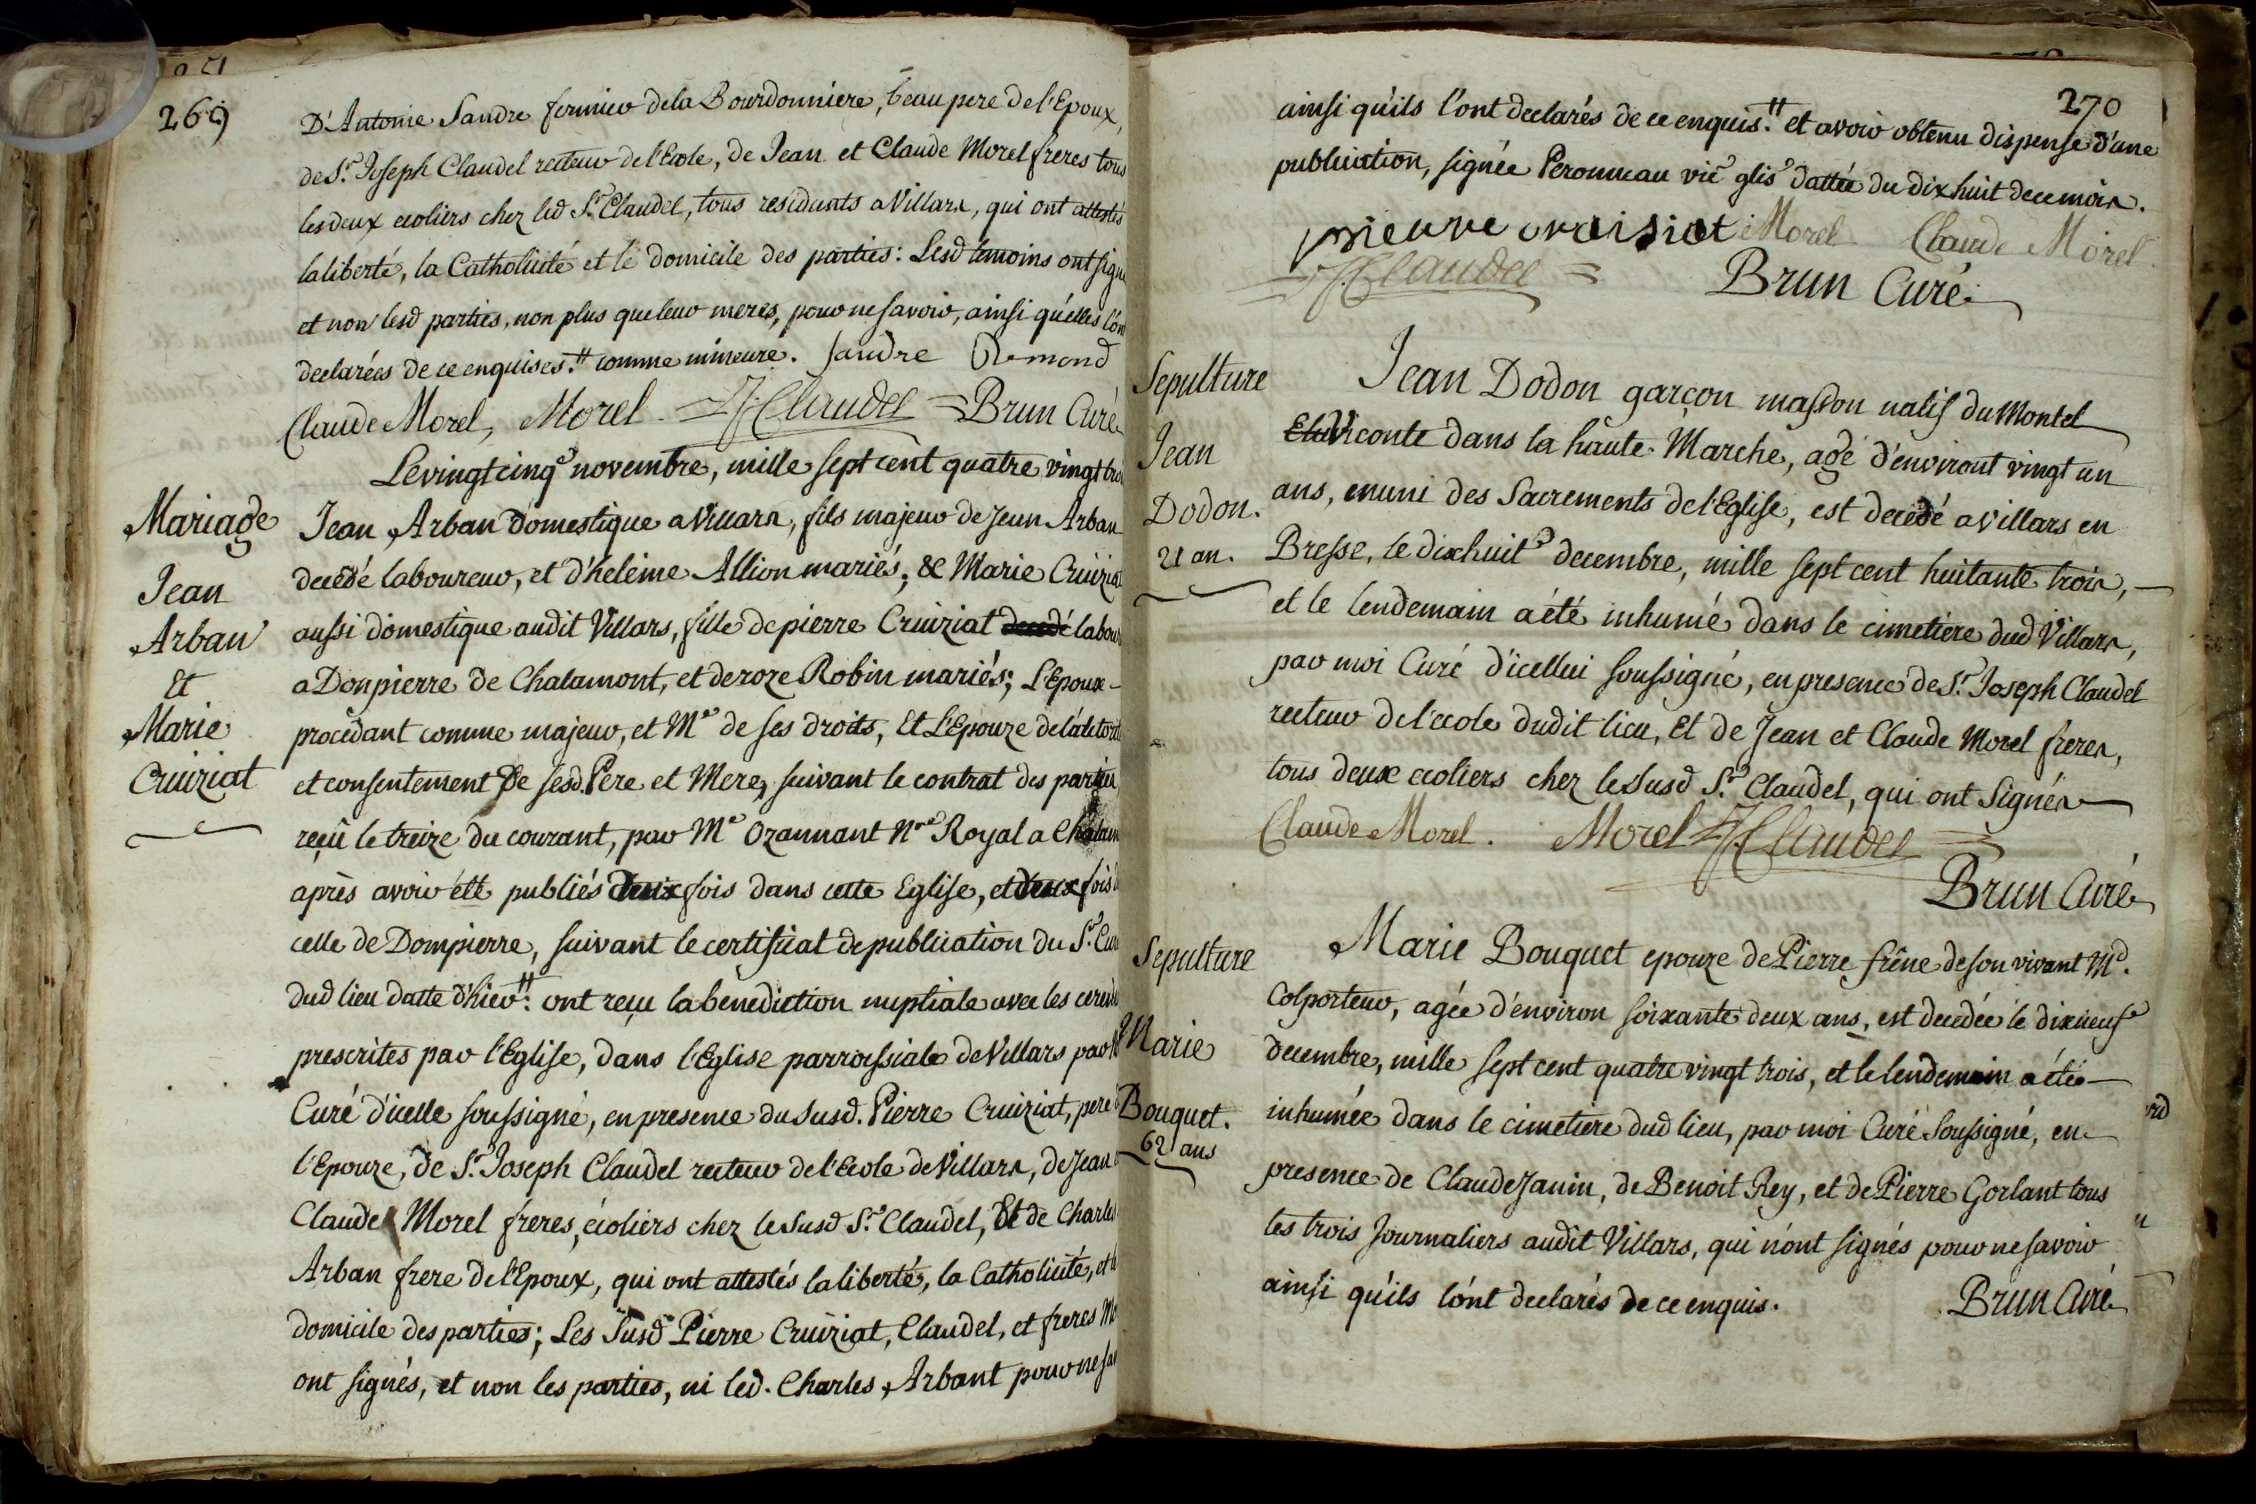 269
D'Antonie Sandre fermier de la Bourdonniere, beau pere de l'Epoux,
de Sr. Joseph Claudel recteur de l'Ecole, de Jean et Claude Morel freres tous
les deux ecoliers chez led Sr. Claudel, tous residants a Villars, qui ont attestés
la liberté, la Catholicité et le domicile des parties: Lesd temoins ont signé
et non lesd parties, non plus que leur meres, pour ne savoir, ainsi qu'elles l'ont
declarées de ce enquises.# comme mineure. Sandre Remond
Claude Morel, Morel J Claudel Brun Curé
Le vingt cinqe novembre, mille sept cent quatre vingt trois
Mariage
Jean
Arban
Et
Marie
Cruiziat
Jean Arban domestique a Villars, fils majeur de Jean Arban
decedé laboureur, et d'heleine Allion mariés; & Marie Cruiziat
aussi domestique audit Villars, fille de pierre Cruiziat decedé labour
a Donpierre de Chalamont, et de roze Robin mariés; L'Epoux
procedant comme majeur, et Me de ses droits, Et L'Epouze de l'autorité
et consentement De sesd. Pere et Mere, suivant le contrat des parties
reçû le treize du courant, par Me Ozannant Nre Royal a Chalam
après avoir été publiés deux fois dans cette Eglise, et deux fois
celle de Dompierre, suivant le certificat de publication du Sr. Curé
dud lieu datte d'hier#: ont reçu la benediction nuptiale avec les ceremo
prescrites par l'Eglise, dans l'Eglise parroissiale de Villars par
Curé d'icelle soussigné, en presence du susd. Pierre Cruiziat, pere
l'Epouze, de Sr. Joseph Claudel recteur de l'Ecole de Villars, de Jean
Claude Morel freres, écoliers chez le susd Sr. Claudel, Et de Charles
Arban frere de l'Epoux, qui ont attestés la liberté, la Catholicité, et
domicile des parties; Les susd Pierre Cruiziat, Claudel, et freres Mo
ont signés, et non les parties, ni led. Charles Arbant pour ne sav
270
ainsi qu'ils l'ont declarés de ce enquis.# et avoir obtenu dispense d'une
publication, signée Peronneau vic glis dattée du dix huit de ce mois.
pieure craisiat Morel Claude Morel
J Claudel Brun Curé
Sepulture
Jean
Dodon.
21 an.
Jean Dodon garçon masson natif du Montel
Viconte dans la hâute Marche, agé d'environt vingt un
ans, muni des Sacrements de l'Eglise, est decedé a Villars en
Bresse, le dix huite decembre, mille sept cent huitante trois,
et le lendemain a été inhumé dans le cimetiere dud Villars,
par moi Curé d'icellui soussigné, en presence de Sr. Joseph Claudel
recteur de l'ecole dudit lieu, Et de Jean et Claude Morel freres,
tous deux ecoliers chez le susd Sr. Claudel, qui ont signés
Claude Morel. Morel J Claudel
Brun Curé
Sepulture
Marie
Bouquet.
62 ans
Marie Bouquet epouze de Pierre frêne de son vivant Md.
Colporteur, agée d'environ soixante deux ans, est decedée le dixneufe
decembre, mille sept cent quatre vingt trois, et le lendemain a été
inhumée dans le cimetiere dud lieu, par moi Curé soussigné, en
presence de Claude Janin, de Benoit Rey, et de Pierre Gorlant tous
les trois Journaliers audit Villars, qui n'ont signés pour ne savoir
ainsi qu'ils l'ont declarés de ce enquis. Brun Curé